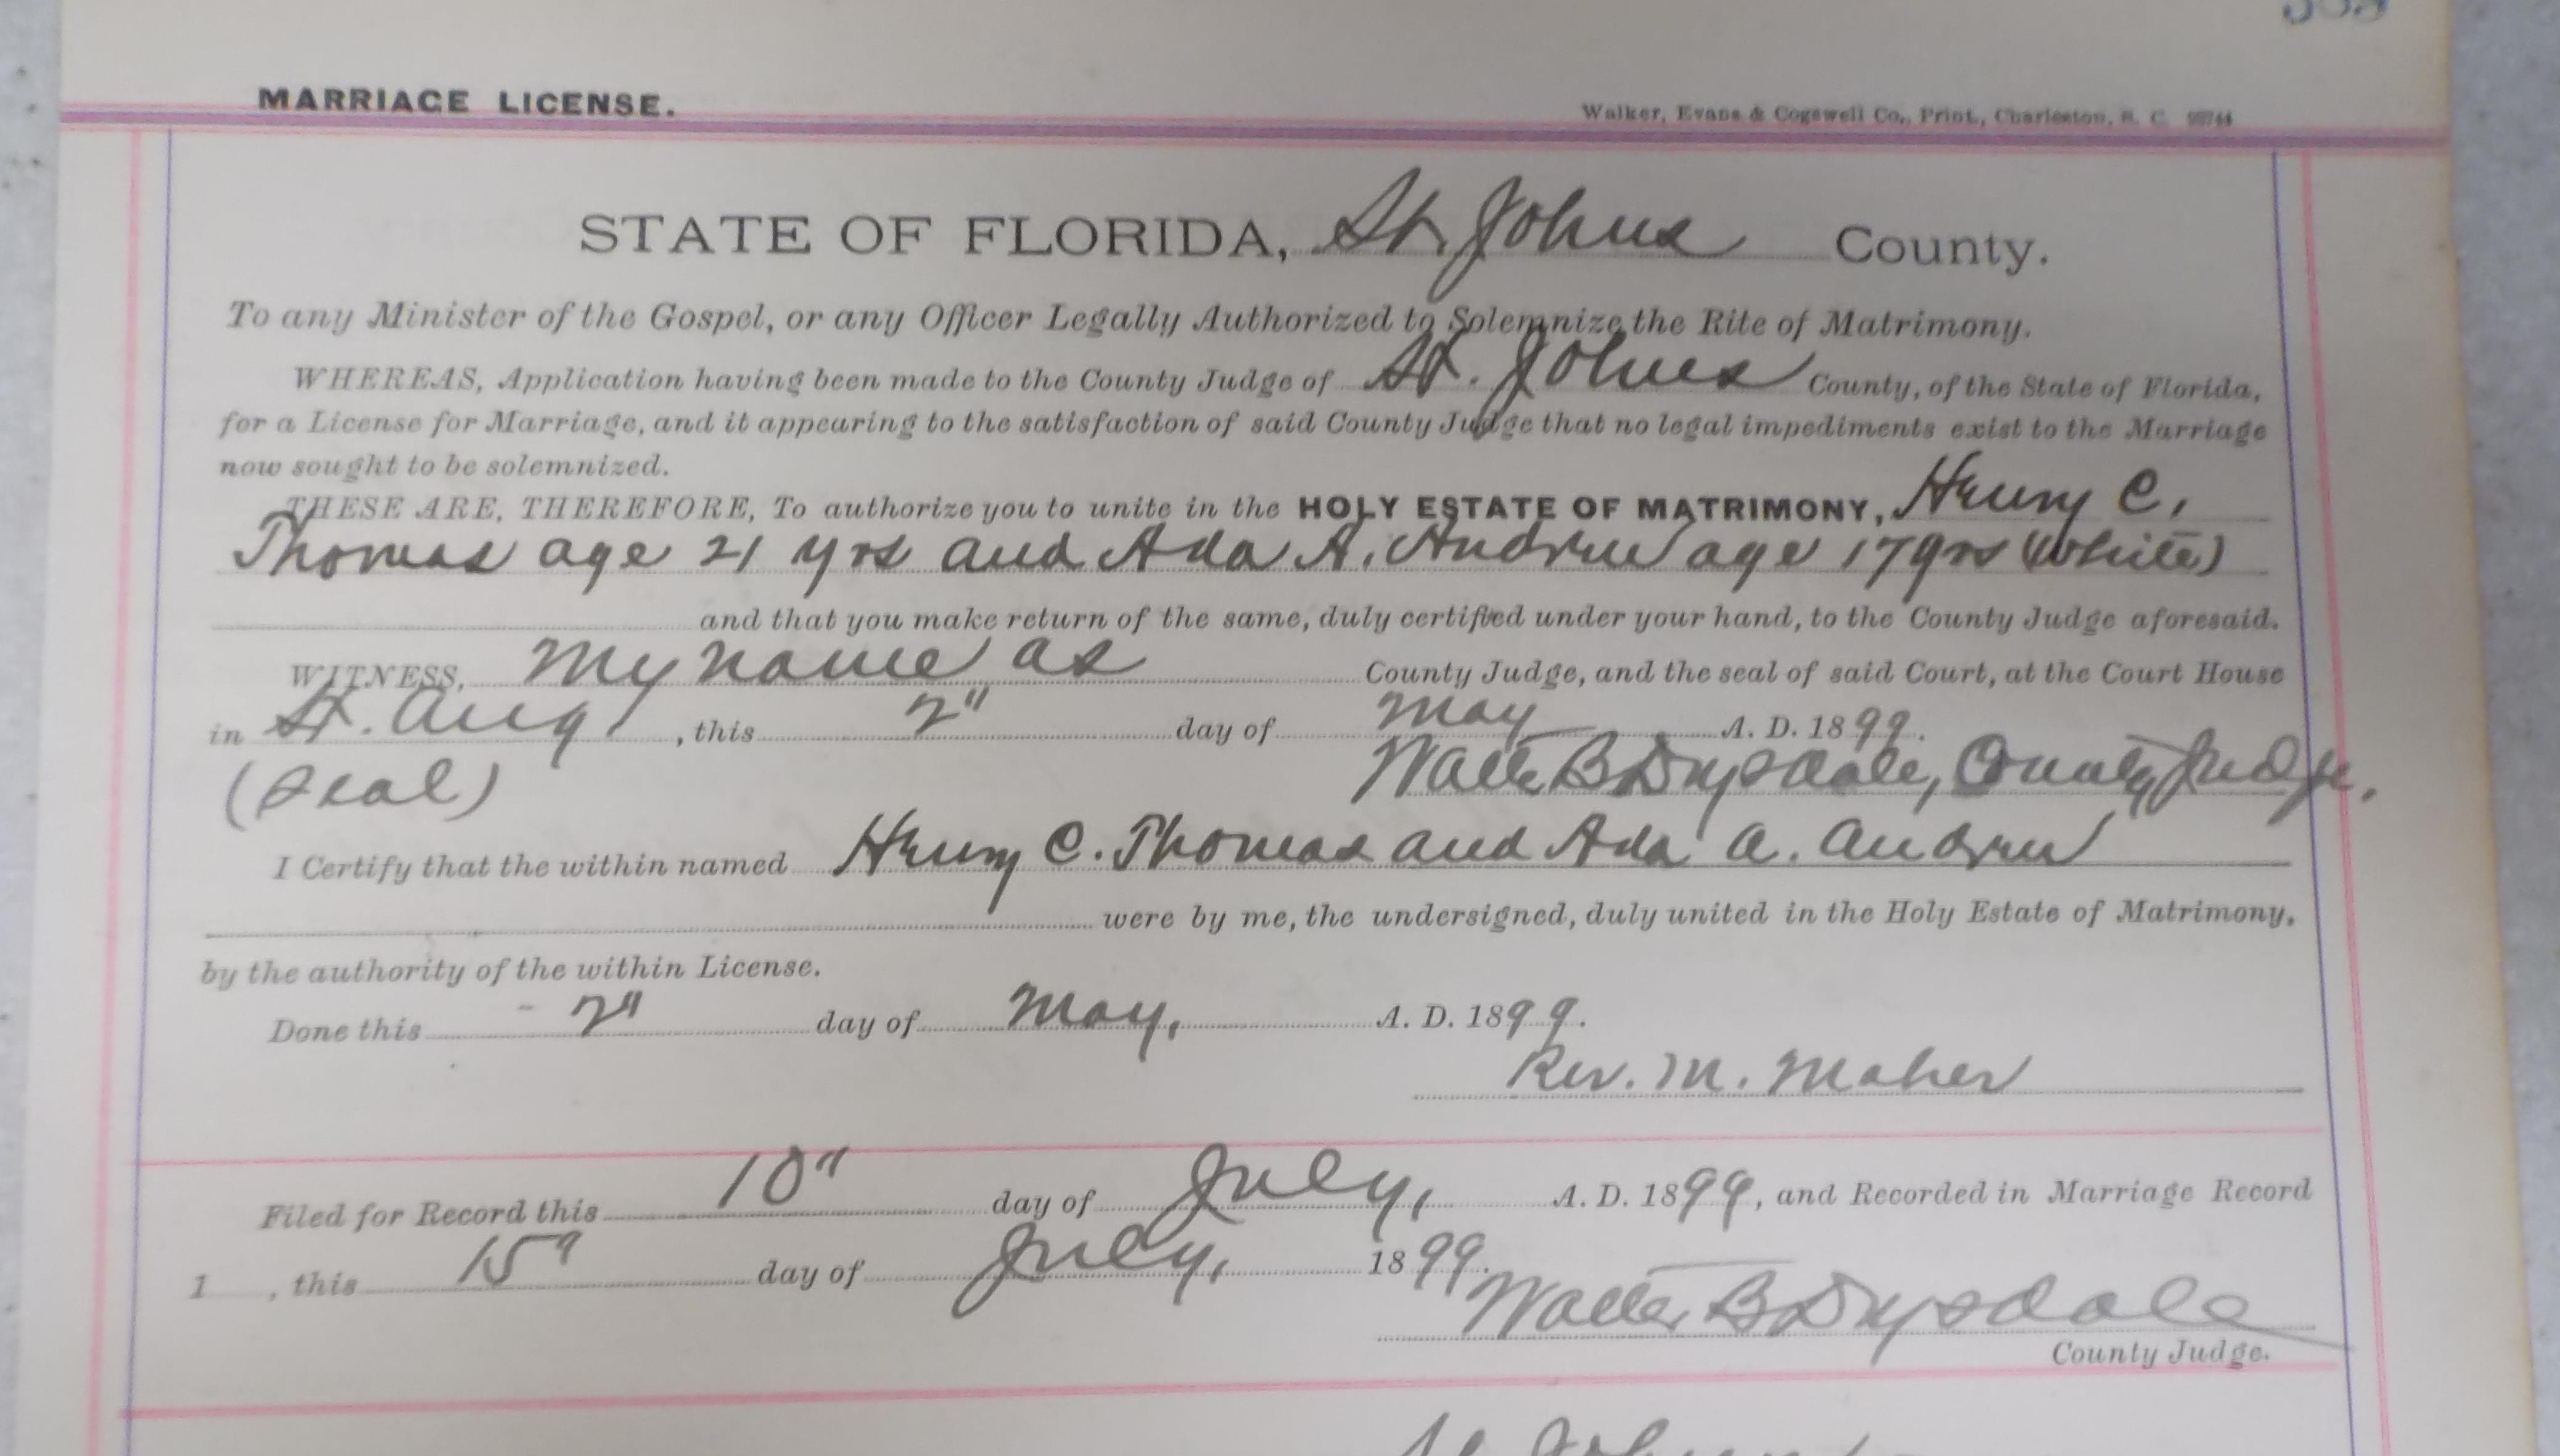 MARRIAGE LICENSE.
Walker, Evans & Cogswell Co., Print., Charleston, S. C.
STATE OF FLORIDA, St. Johns County.
To any Minister of the Gospel, or any Officer Legally Authorized to Solemnize the Rite of Matrimony.
WHEREAS, Application having been made to the County Judge of St. Johns County, of the State of Florida,
for a License for Marriage, and it appearing to the satisfaction of said County Judge that no legal impediments exist to the Marriage
now sought to be solemnized.
THESE ARE, THEREFORE, To authorize you to unite in the HOLY ESTATE OF MATRIMONY, Henry C.
Thomas age 21 yrs and Ada A. Andrew age 17 yrs (White)
and that you make return of the same, duly certified under your hand, to the County Judge aforesaid.
WITNESS, My name as County Judge, and the seal of said Court, at the Court House
in St. Aug, this 2" day of May A. D. 1899.
(Seal) Walter B Drysdale, County Judge.
I Certify that the within named Henry C. Thomas and Ada A. Andrew
were by me, the undersigned, duly united in the Holy Estate of Matrimony,
by the authority of the within License.
Done this 2" day of May, A. D. 1899.
Rev. M. Maher
Filed for Record this 10" day of July, A. D. 1899, and Recorded in Marriage Record
1 , this 15" day of July, 1899.
Walter B Drysdale
County Judge.